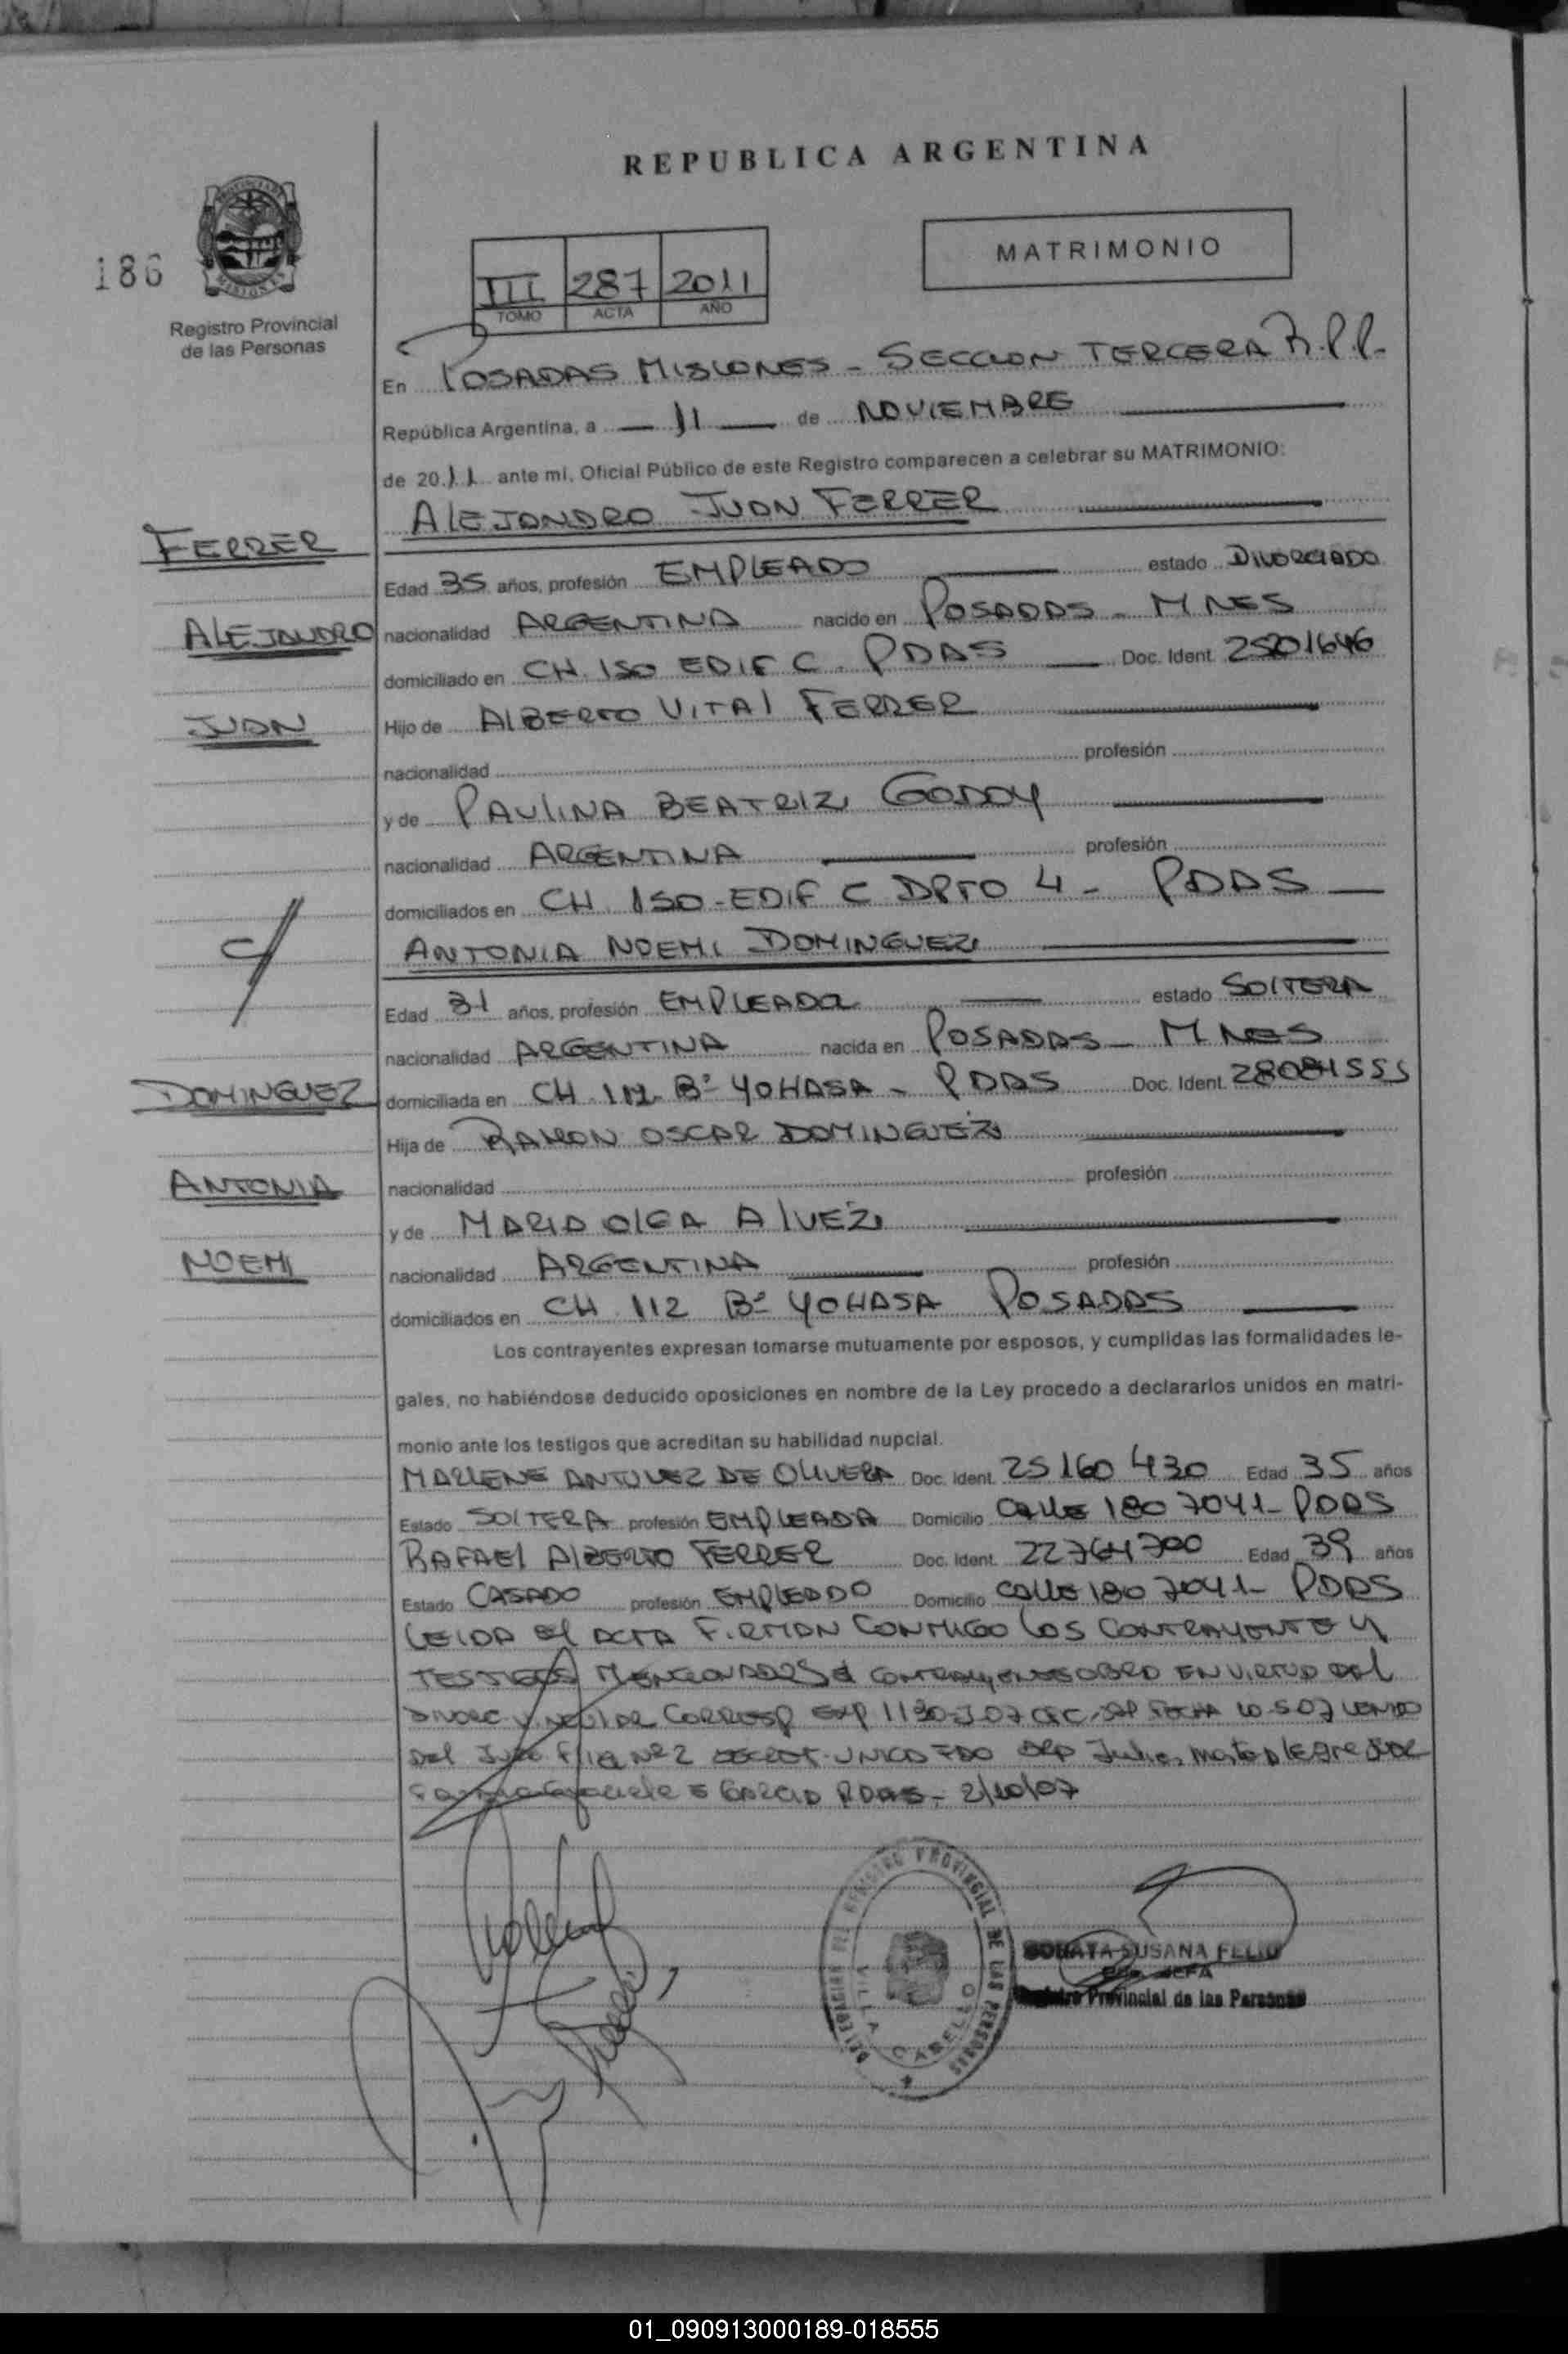 REPUBLICA ARGENTINA
186
Registro Provincial
de las Personas
MATRIMONIO
III 287 2011
TOMO ACTA AÑO
En POSADAS MISIONES - SECCION TERCERA R.P.P.
República Argentina, a 11 de NOVIEMBRE
de 2011 ante mí, Oficial Público de este Registro comparecen a celebrar su MATRIMONIO:
ALEJANDRO JUAN FERRER
FERRER
Edad 35 años, profesión EMPLEADO estado DIVORCIADO
ALEJANDRO
nacionalidad ARGENTINA nacido en POSADAS - MNES
domiciliado en CH. 150 EDIF C. PDAS Doc. Ident. 25201646
JUAN
Hijo de ALBERTO VITAL FERRER
nacionalidad profesión
y de PAULINA BEATRIZ GODOY
nacionalidad ARGENTINA profesión
domiciliados en CH. 150 - EDIF C DPTO 4 - PDAS
ANTONIA NOEMI DOMINGUEZ
Edad 31 años, profesión EMPLEADA estado SOLTERA
nacionalidad ARGENTINA nacida en POSADAS - MNES
DOMINGUEZ
domiciliada en CH. 112 Bº YOHASA - PDAS Doc. Ident. 28081555
Hija de RAMON OSCAR DOMINGUEZ
ANTONIA
nacionalidad profesión
y de MARIA OLGA ALVEZ
NOEMI
nacionalidad ARGENTINA profesión
domiciliados en CH 112 Bº YOHASA POSADAS
Los contrayentes expresan tomarse mutuamente por esposos, y cumplidas las formalidades le-
gales, no habiéndose deducido oposiciones en nombre de la Ley procedo a declararlos unidos en matri-
monio ante los testigos que acreditan su habilidad nupcial.
MARLENE ANTUNEZ DE OLIVERA Doc. Ident. 25160430 Edad 35 años
Estado SOLTERA profesión EMPLEADA Domicilio CALLE 180 7041 - PDAS
RAFAEL ALBERTO FERRER Doc. Ident. 22764700 Edad 39 años
Estado CASADO profesión EMPLEADO Domicilio CALLE 180 7041 - PDAS
LEIDA EL ACTA FIRMAN CONMIGO LOS CONTRAYENTE Y
TESTIGOS MENCIONADOS CONTRAYENTE EN VIRTUD DEL
DIVORC VINCULAR CORRESP EXP FECHA
DEL Nº 2 UNICO FDO
GARCIA PDAS - 2/10/07
DELEGACION DEL REGISTRO PROVINCIAL DE LAS PERSONAS
VILLA CABELLO
SUSANA FELIU
JEFA
Registro Provincial de las Personas
01_090913000189-018555